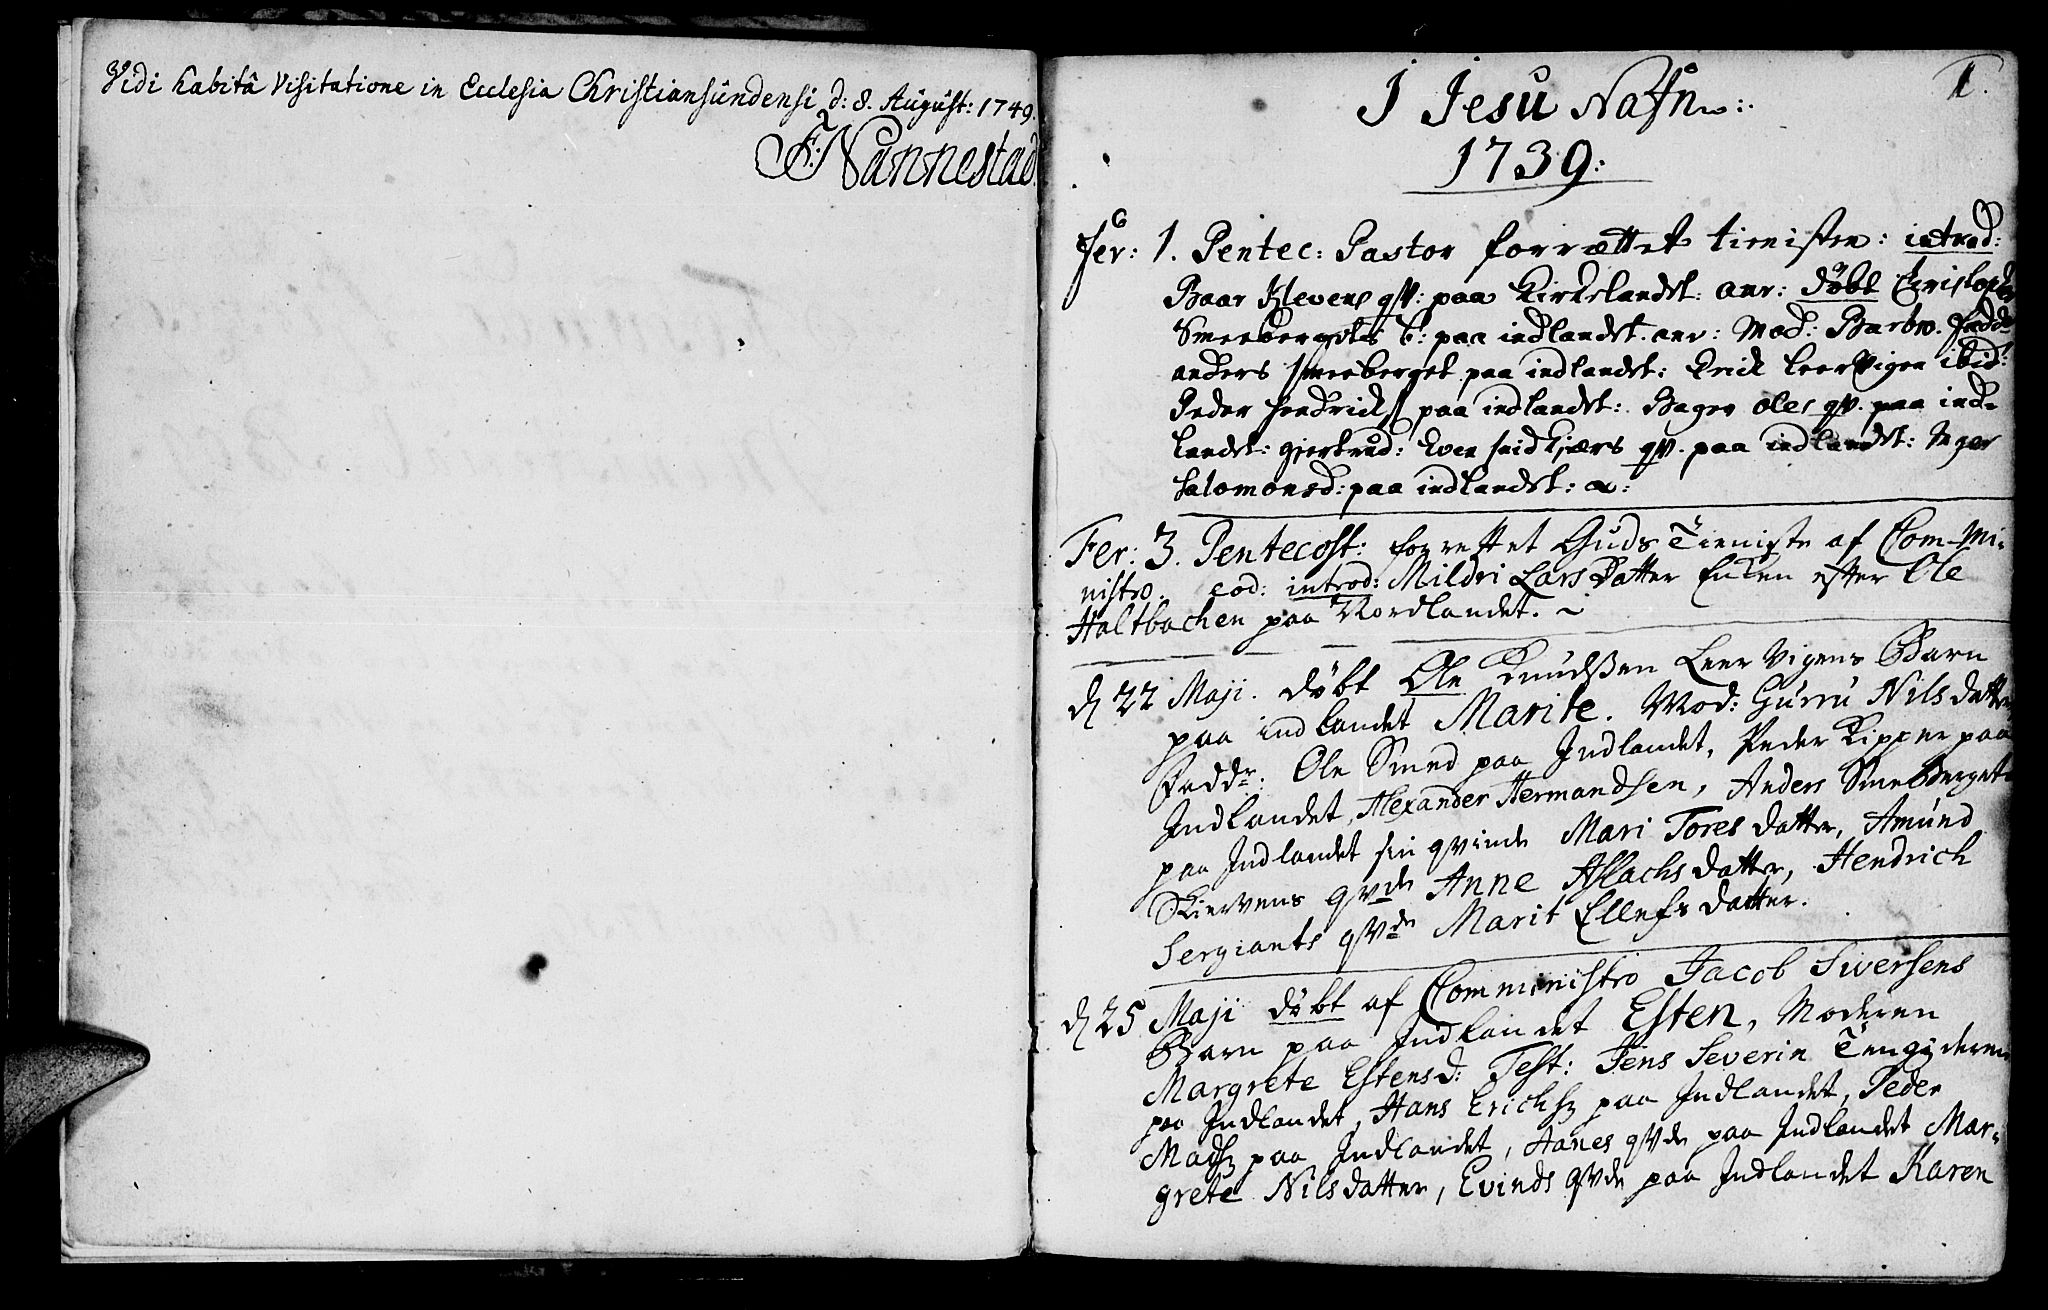 Vidi habitâ Visitatione in Ecclesia Christiansundensi d: 8. August: 1749.
F: Nannestad.
1.
I Jesu Nafn:
1739:
Fer: 1. Pentec: Pastor forrættet tienisten: introd:
Baar Klevens qv: paa Kirkelandet: anr: døbt Christopher
Smeebergets b: paa indlandet. anr: Mod: Barbro. Fadd:
anders smeeberget paa indlandet: Erick Leervigen ibid:
Peder Hendricks paa indlandet: Bages Oles qv. paa ind-
landet: gjertrud: Even Kjærs qv. paa indlandet: Inger
Salomonsd: paa indlandet: a:
Fer: 3. Pentecost: forrettet Guds Tieniste af Com-Mi-
nistro. eod: introd: Mildri LarsDatter Enken efter Ole
Haltbachen paa Nordlandet.
d 22 Maji. døbt Ole Knudßen Leer Vigens Barn
paa indlandet Marite. Mod: Gurru Nilsdatter
Fadd: Ole Smed paa Indlandet, Peder Kipper paa
Indlandet, Alexander Hermandsen, Anders Smeberget
paa Indlandet sin qvinde Mari Tores datter, Amund
Skiervens qvde Anne Aslachs datter, Hendrich
Sergiants qvde Marit Ellefs datter.
d 25 Maji døbt af Comministro Jacob Siversens
Barn paa Indlandet Esten, Moderen
Margrete Estensd: Test: Jens Severin
paa Indlandet, Hans Erichs paa Indlandet, Peder
Mads paa Indlandet, Hanes qvde paa Indlandet Mar-
grete Nilsdatter, Evinds qvde paa Indlandet Karen